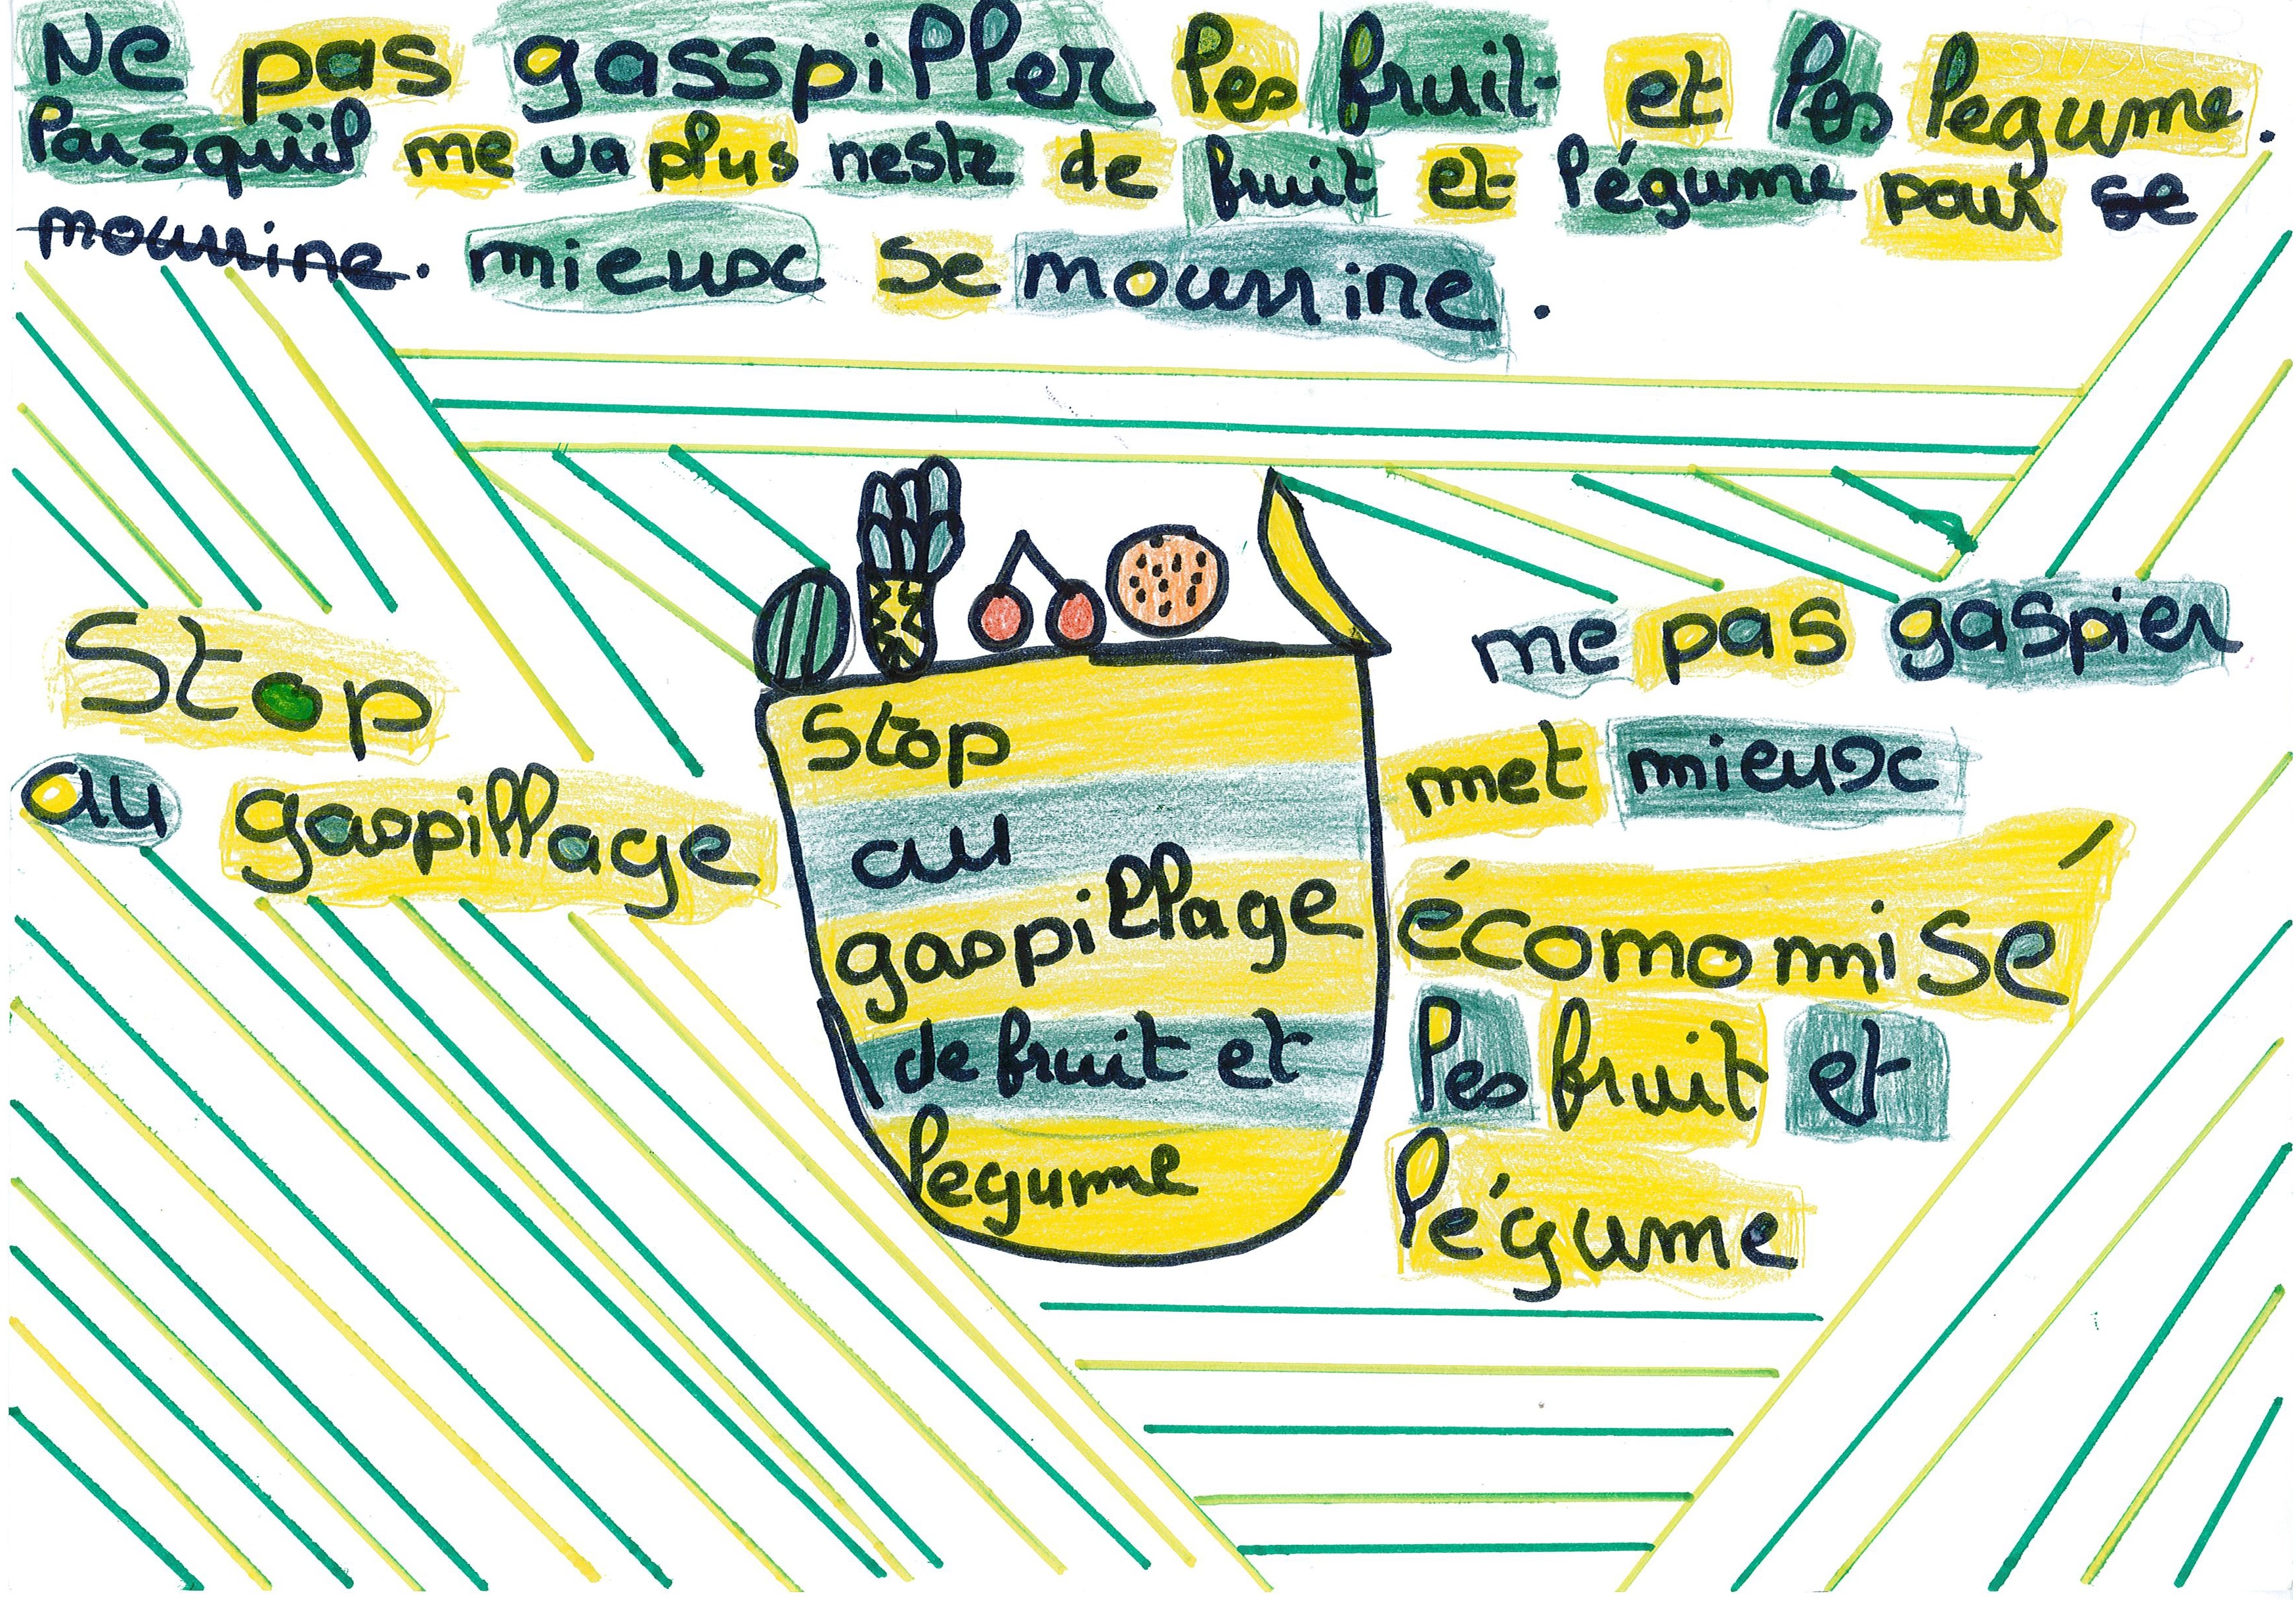 Ne pas gasspiller les fruit et les legume.
Parsqu'il ne va plus reste de fruit et légume pour se
nourrire. mieux se nourrire.
Stop
au gaspillage
Stop
au
gaspillage
de fruit et
legume
ne pas gaspier
met mieux
économisé
les fruit et
légume